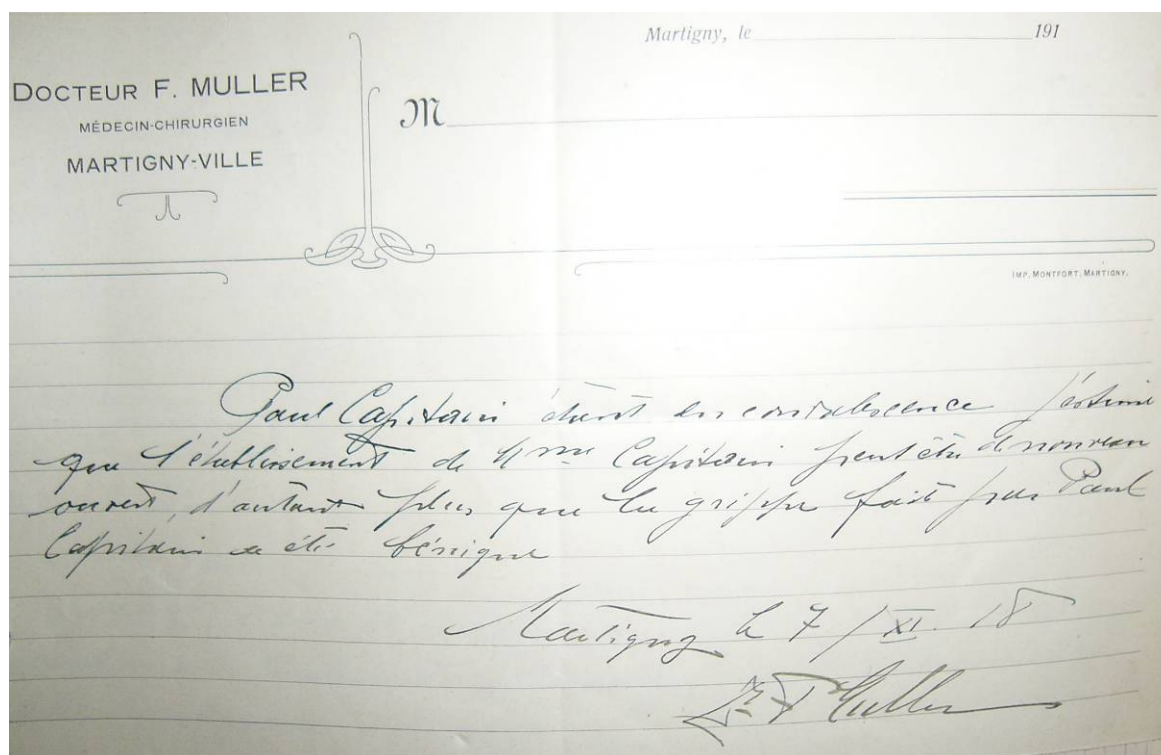 Martigny, le 191
DOCTEUR F. MULLER
MÉDECIN-CHIRURGIEN
MARTIGNY-VILLE
M
IMP. MONTFORT, MARTIGNY.
Paul Capitain étant en convalescence j'estime
que l'établissement de Mme Capitain peut être de nouveau
ouvert, d'autant plus que la grippe fait par Paul
Capitain a été bénigne
Martigny le 7/XI. 18
Dr F Muller